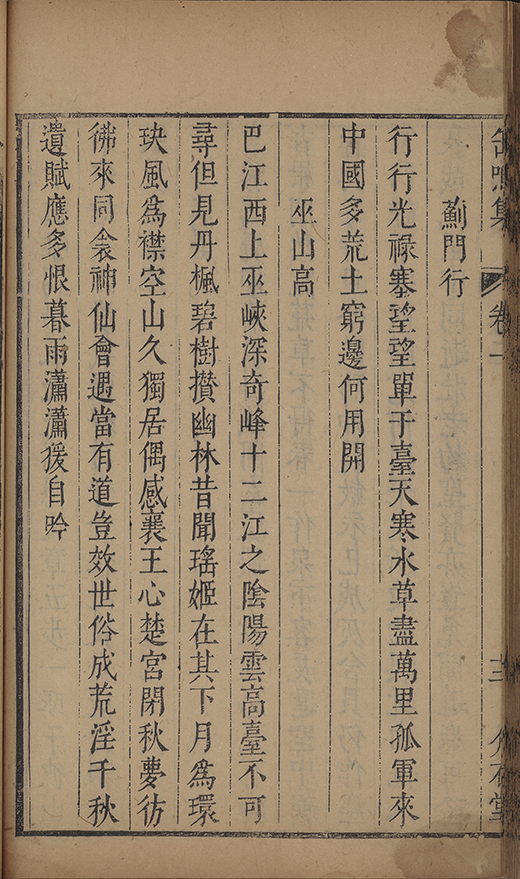 集 卷一
薊門行
行行光祿塞望望單于臺天寒水草盡萬里孤軍來
中國多荒土窮邊何用開
巫山高
巴江西上巫峽深奇峰十二江之陰陽雲高臺不可
尋但見丹楓碧樹攢幽林昔聞瑤姬在其下月為環
玦風為襟空山久獨居偶感襄王心楚宮閉秋夢彷
彿來同衾神仙會遇當有道豈效世俗成荒淫千秋
遺賦應多恨暮雨瀟瀟猨自吟